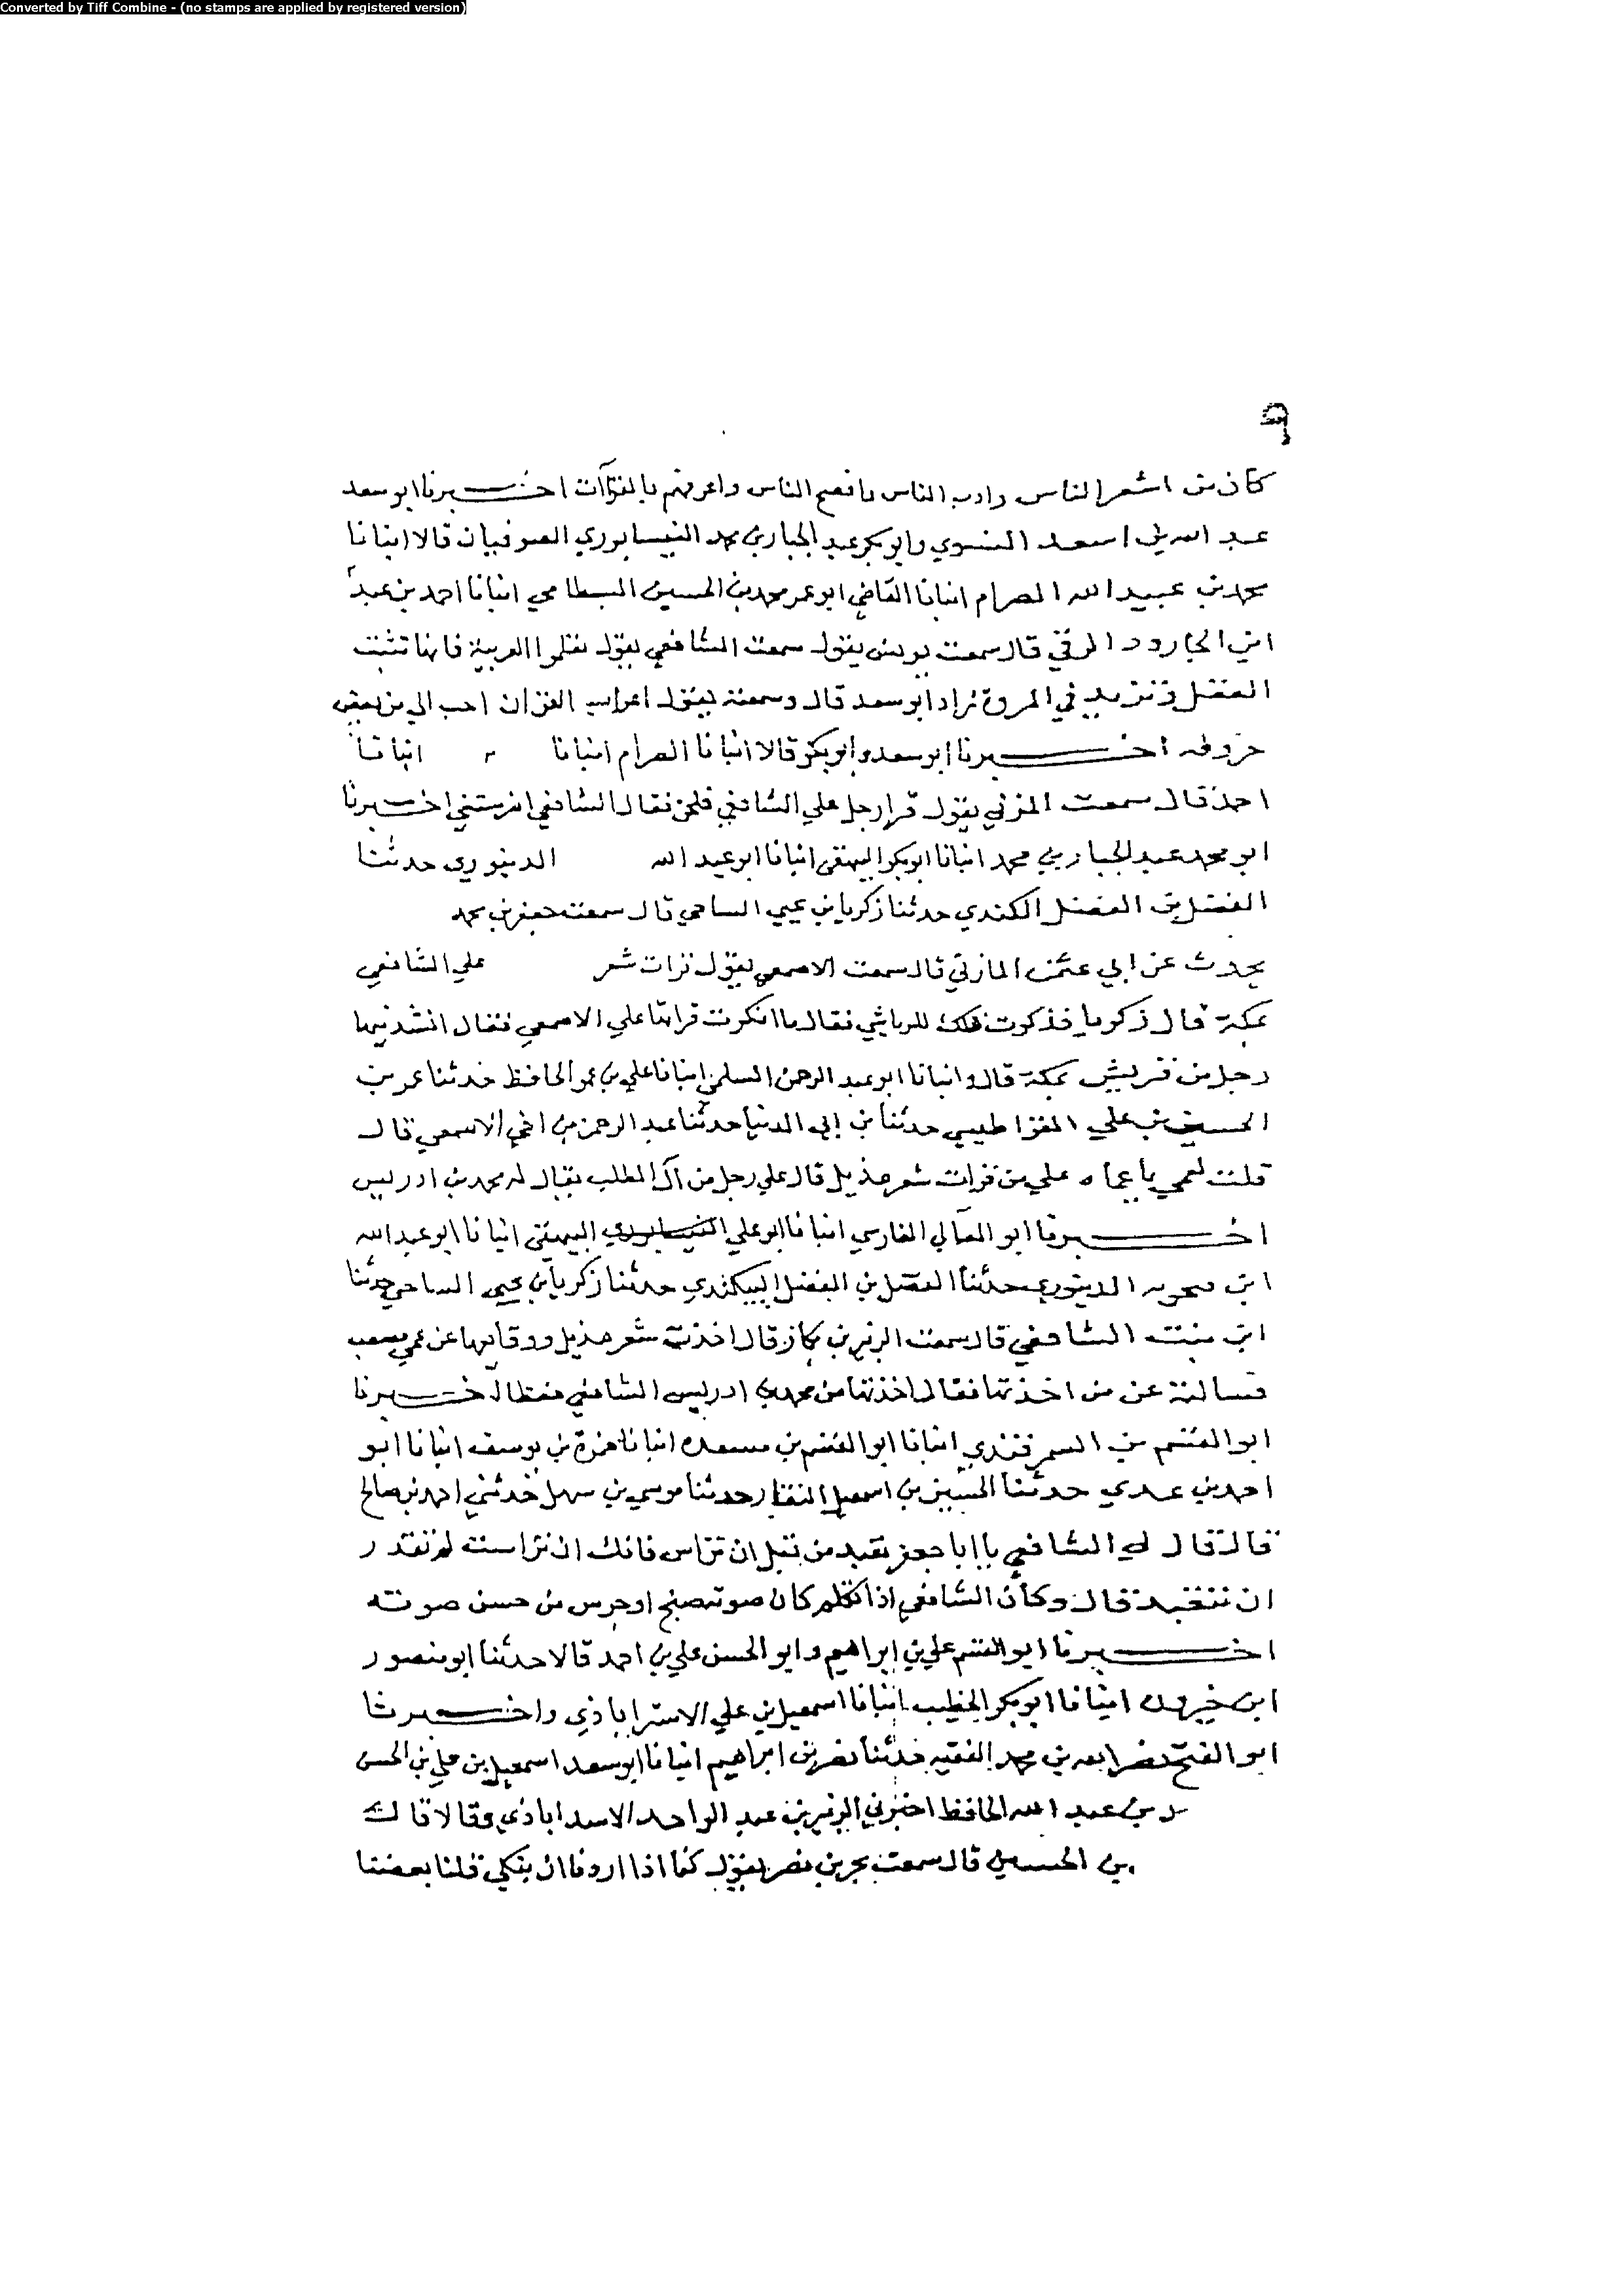 Converted by Tiff Combine - (no stamps are applied by registered version)
٩
كان من اشعر الناس وادب الناس وافصح الناس واعرفهم بالقراآت اخبرنا ابو سعد
عبد الله بن اسعد النسوي وابو بكر عبد الجبار بن محمد النيسابوري الصوفيان قالا انبانا
محمد بن عبيد الله الصرام انبانا القاضي ابو عمر محمد بن الحسين البسطامي انبانا احمد بن عبد
ابن الجارود الرقي قال سمعت يونس يقول سمعت الشافعي يقول تعلموا العربية فانها تثبت
العقل وتزيد في المروة زاد ابو سعد قال وسمعته يقول اعراب القران احب الي من بعض
حروفه اخبرنا ابو سعد وابو بكر قالا انبانا الصرام انبانا انبانا
احمد قال سمعت المزني يقول قرا رجل علي الشافعي فلحن فقال الشافعي اضرستني اخبرنا
ابو محمد عبد الجبار بن محمد انبانا ابو بكر البيهقي انبانا ابو عبد الله الدينوري حدثنا
الفضل بن الفضل الكندي حدثنا زكريا بن يحيي الساجي قال سمعت جعفر بن محمد
يحدث عن ابي عثمن المازني قال سمعت الاصمعي يقول قرات شعر علي الشافعي
بمكة قال زكريا فذكرت ذلك للرياشي فقال ما انكرت قراتها علي الاصمعي فقال انشدنيها
رجل من قريش بمكة قال وانبانا ابو عبد الرحمن السلمي انبانا علي بن عمر الحافظ حدثنا عمر بن
الحسن بن علي القراطيسي حدثنا بن ابي الدنيا حدثنا عبد الرحمن بن اخي الاصمعي قال
قلت لعمي يا عماه علي من قرات شعر هذيل قال علي رجل من آل المطلب يقال له محمد بن ادريس
اخبرنا ابو المعالي الفارسي انبانا ابو علي البيهقي انبانا ابو عبد الله
ابن فنجويه الدينوري حدثنا الفضل بن الفضل الكندي حدثنا زكريا بن يحيي الساجي حدثنا
ابن بنت الشافعي قال سمعت الزبير بن بكار قال اخذت شعر هذيل ووقايعها عن عمي مصعب
فسالته عن من اخذتها فقال اخذتها من محمد بن ادريس الشافعي حفظا اخبرنا
ابو القسم بن السمرقندي انبانا ابو القسم بن مسعده انبانا حمزة بن يوسف انبانا ابو
احمد بن عدي حدثنا الحسين بن اسمعيل النقار حدثنا موسي بن سهل حدثني احمد بن صالح
قال قال لي الشافعي يا ابا جعفر تعبد من قبل ان تراس فانك ان تراست لم تقدر
ان تتعبد قال وكان الشافعي اذا تكلم كان صوته صنج او جرس من حسن صوته
اخبرنا ابو القسم علي بن إبراهيم وابو الحسن علي بن احمد قالا حدثنا ابو منصور
ابن خيرون انبانا ابو بكر الخطيب انبانا اسمعيل بن علي الاستراباذي واخبرنا
ابو الفتح نصر الله بن محمد الفقيه حدثنا نصر بن ابراهيم انبانا ابو سعد اسمعيل بن علي بن الحسن
بن عبد الله الحافظ اخبرني الزبير بن عبد الواحد الاسداباذي وقالا قال
بن الحسين قال سمعت بحر بن نصر يقول كنا اذا اردنا ان نبكي قلنا بعضنا